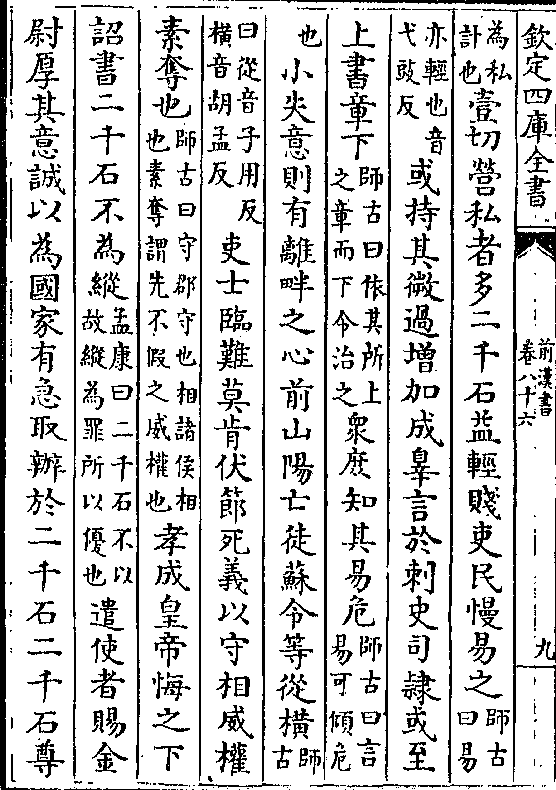 欽定四庫全書
前漢書
卷八十六
九
為私計也壹切營私者多二千石益輕賤吏民慢易之師古曰易
亦輕也音弋豉反或持其微過增加成辠言於刺史司隸或至
上書章下師古曰依其所上之章而下令治之衆庶知其易危師古曰言易可傾危
也小失意則有離畔之心前山陽亡徒蘇令等從橫師古
曰從音子用反橫音胡孟反吏士臨難莫肯伏節死義以守相威權
素奪也師古曰守郡守也相諸侯相也素奪謂先不假之威權也孝成皇帝悔之下
詔書二千石不為縱孟康曰二千石不以故縱為罪所以優也遣使者賜金
尉厚其意誠以為國家有急取辦於二千石二千石尊